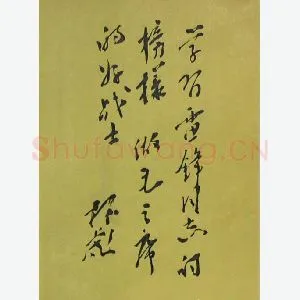 学习雷锋同志的
榜样做毛主席
的好战士
林彪
Shufawang.CN